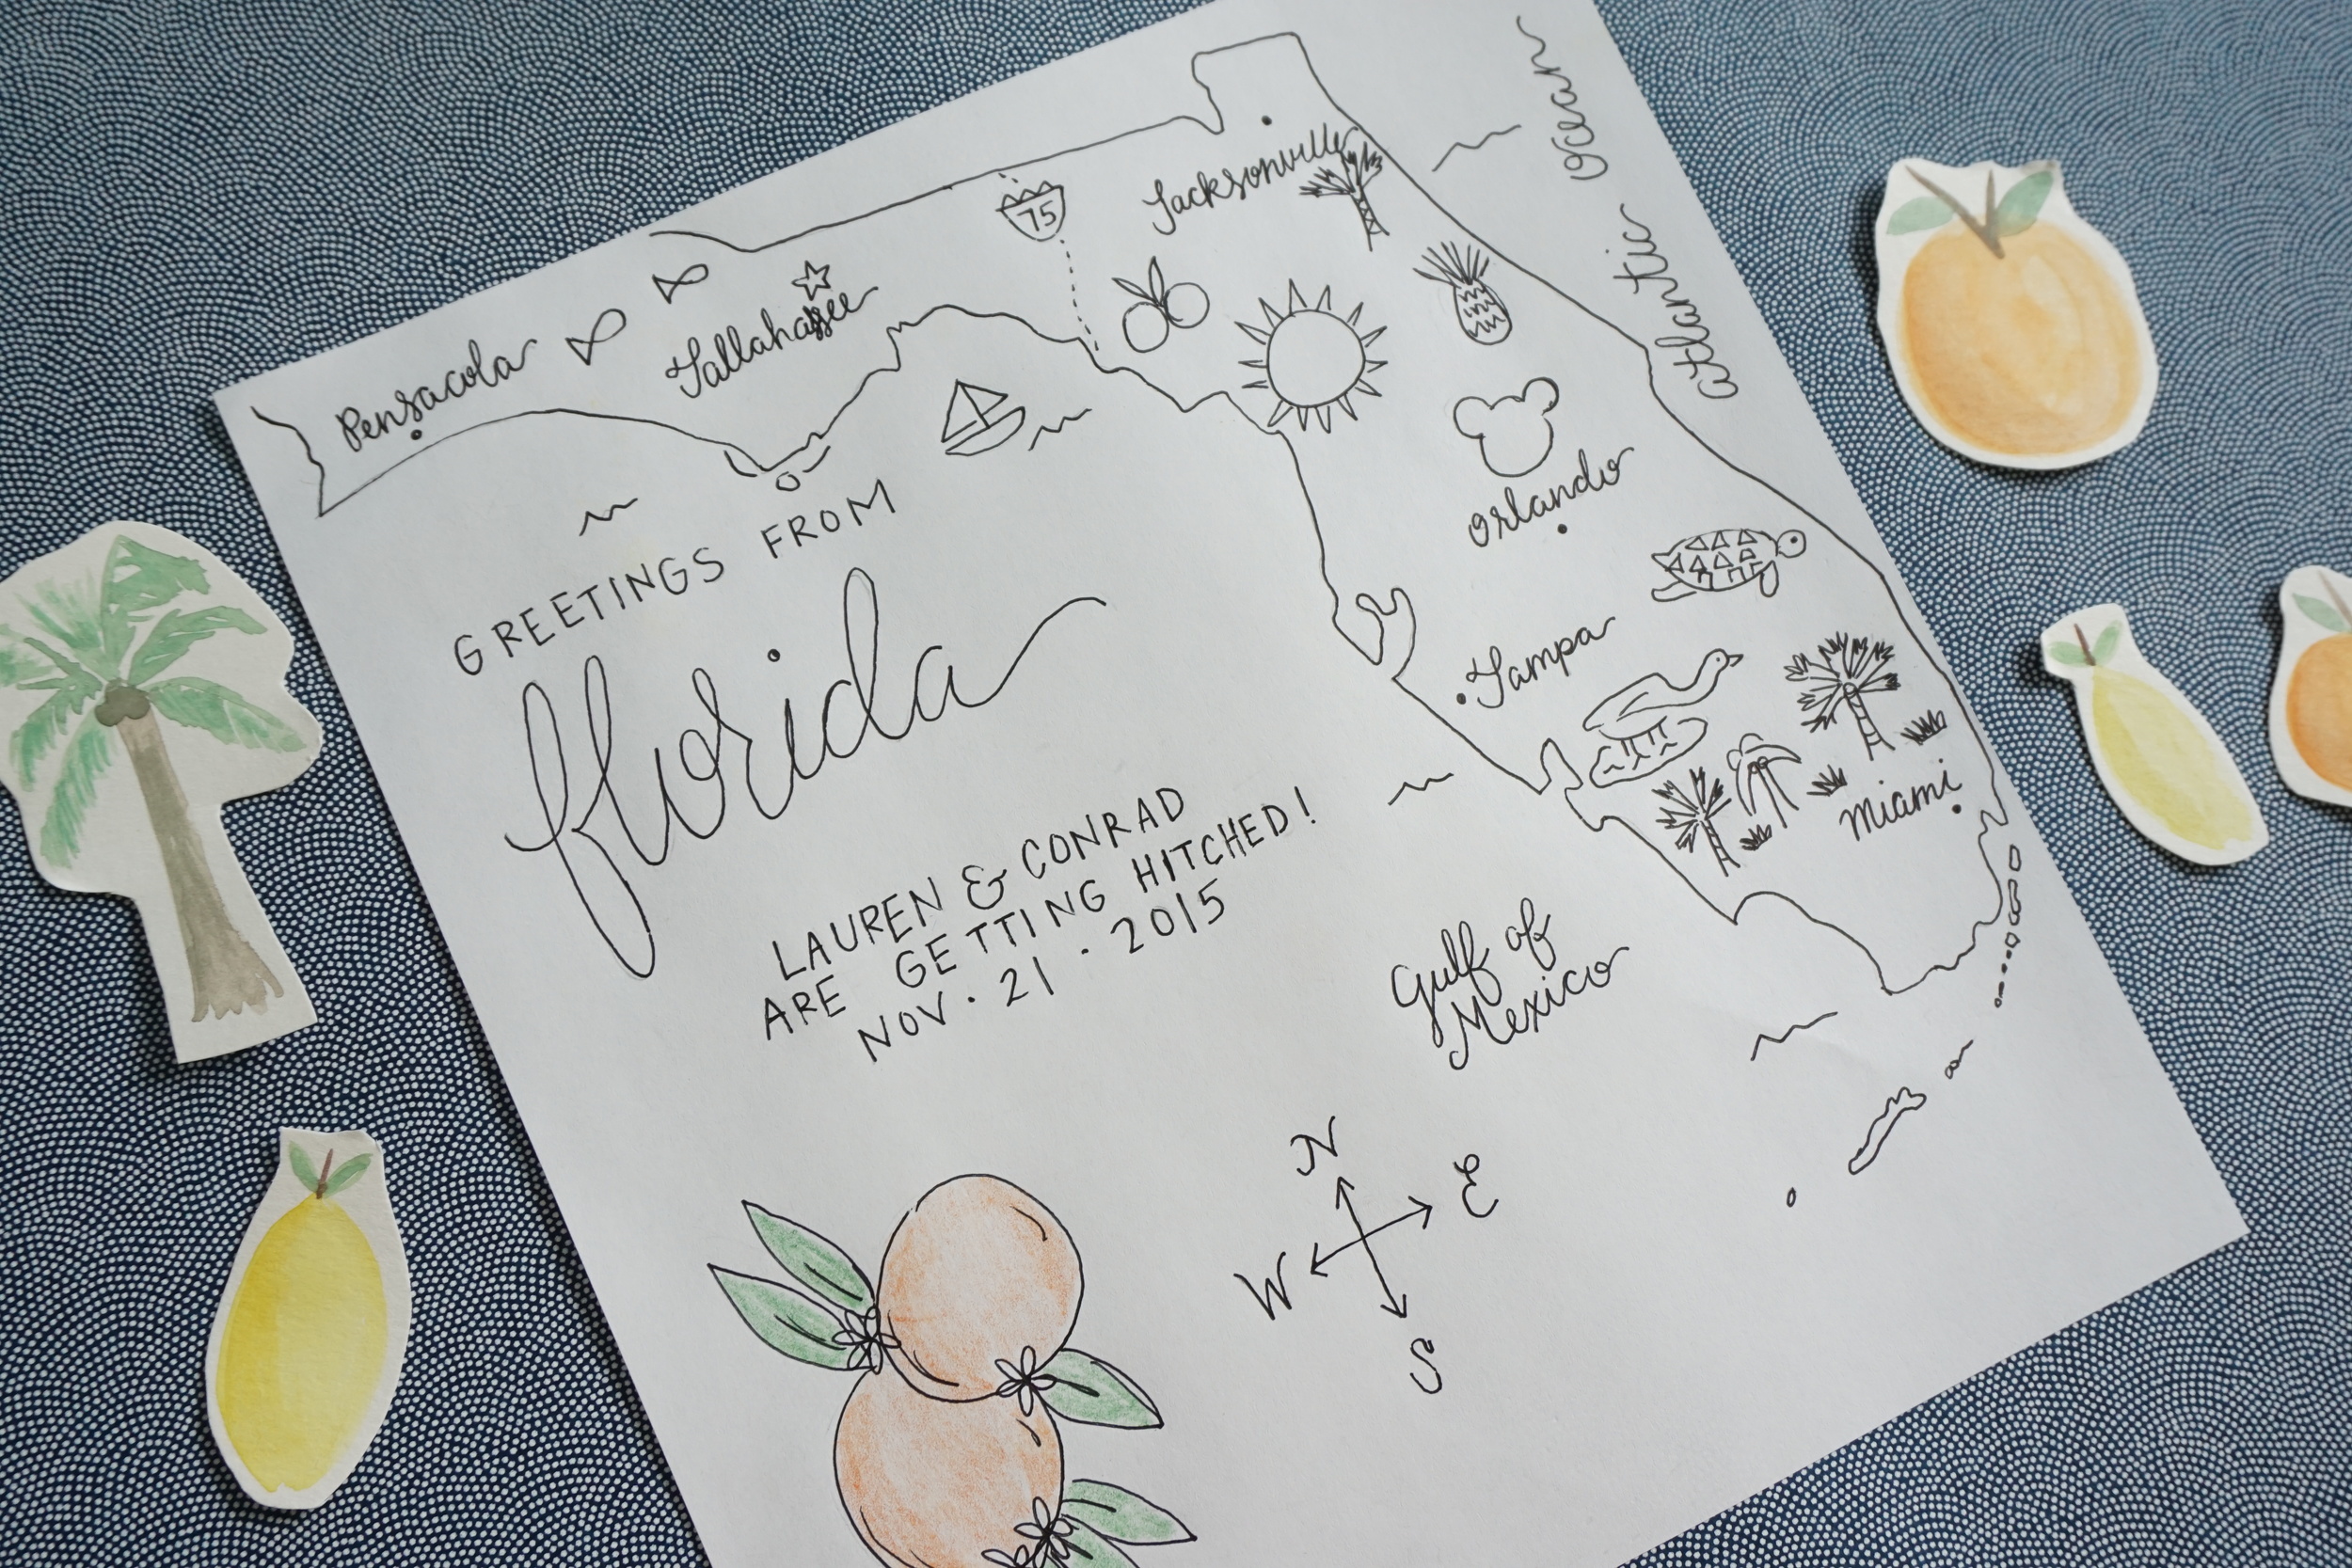 Atlantic Ocean
Jacksonville
75
Tallahassee
Pensacola
Orlando
Tampa
Miami
GREETINGS FROM
florida
LAUREN & CONRAD
ARE GETTING HITCHED!
NOV · 21 · 2015
Gulf of
Mexico
N
E
W
S